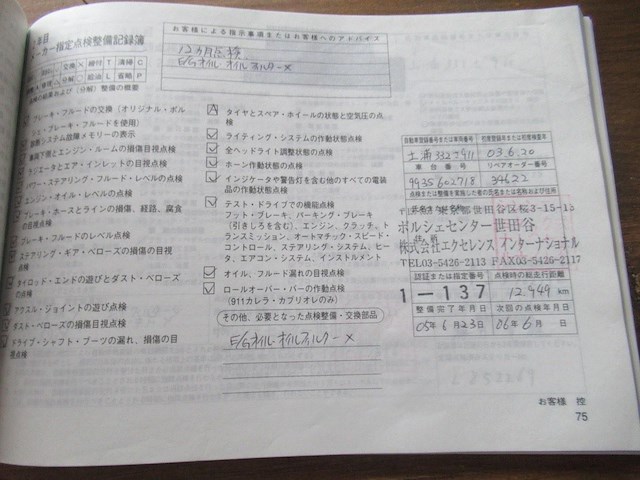 年目
メーカー指定点検整備記録簿
お客様による指示事項またはお客様へのアドバイス
12カ月点検
E/Gオイル、オイルフィルター×
交換 × 締付 T 清掃 C
分解 ○ 給油 L 省略 P
点検の結果および(分解)整備の概要
ブレーキ・フルードの交換(オリジナル・ポル
シェ・ブレーキ・フルードを使用)
診断システム故障メモリーの表示
車両下側とエンジン・ルームの損傷目視点検
ラジエータとエア・インレットの目視点検
パワー・ステアリング・フルード・レベルの点検
エンジン・オイル・レベルの点検
ブレーキ・ホースとラインの損傷、経路、腐食
の目視点検
ブレーキ・フルードのレベル点検
ステアリング・ギア・ベローズの損傷の目視
点検
タイロッド・エンドの遊びとダスト・ベローズ
の点検
アクスル・ジョイントの遊び点検
ダスト・ベローズの損傷目視点検
ドライブ・シャフト・ブーツの漏れ、損傷の目
視点検
A タイヤとスペア・ホイールの状態と空気圧の点
検
ライティング・システムの作動状態点検
全ヘッドライト調整状態の点検
ホーン作動状態の点検
インジケータや警告灯を含む他のすべての電装
品の作動状態点検
テスト・ドライブでの機能点検
フット・ブレーキ、パーキング・ブレーキ
(引きしろを含む)、エンジン、クラッチ、ト
ランスミッション、オートマチック・スピード・
コントロール、ステアリング・システム、ヒー
タ、エアコン・システム、インストルメント
オイル、フルード漏れの目視点検
ロールオーバー・バーの作動点検
(911カレラ・カブリオレのみ)
その他、必要となった点検整備・交換部品
E/Gオイル・オイルフィルター×
自動車登録番号または車両番号 初度登録年または初度検査年
土浦 332 03.6.20
車台番号 リペアオーダー番号
99JS602718 34622
点検または整備を実施した者の氏名または名称および住所
東京都世田谷区桜3-15-15
ポルシェセンター世田谷
株式会社エクセレンス インターナショナル
TEL03-5426-2113 FAX03-5426-2117
認証または指定番号 点検時の総走行距離
1-137 12,949 km
整備完了年月日 次回の点検年月日
05年6月23日 06年6月 日
お客様 控
75